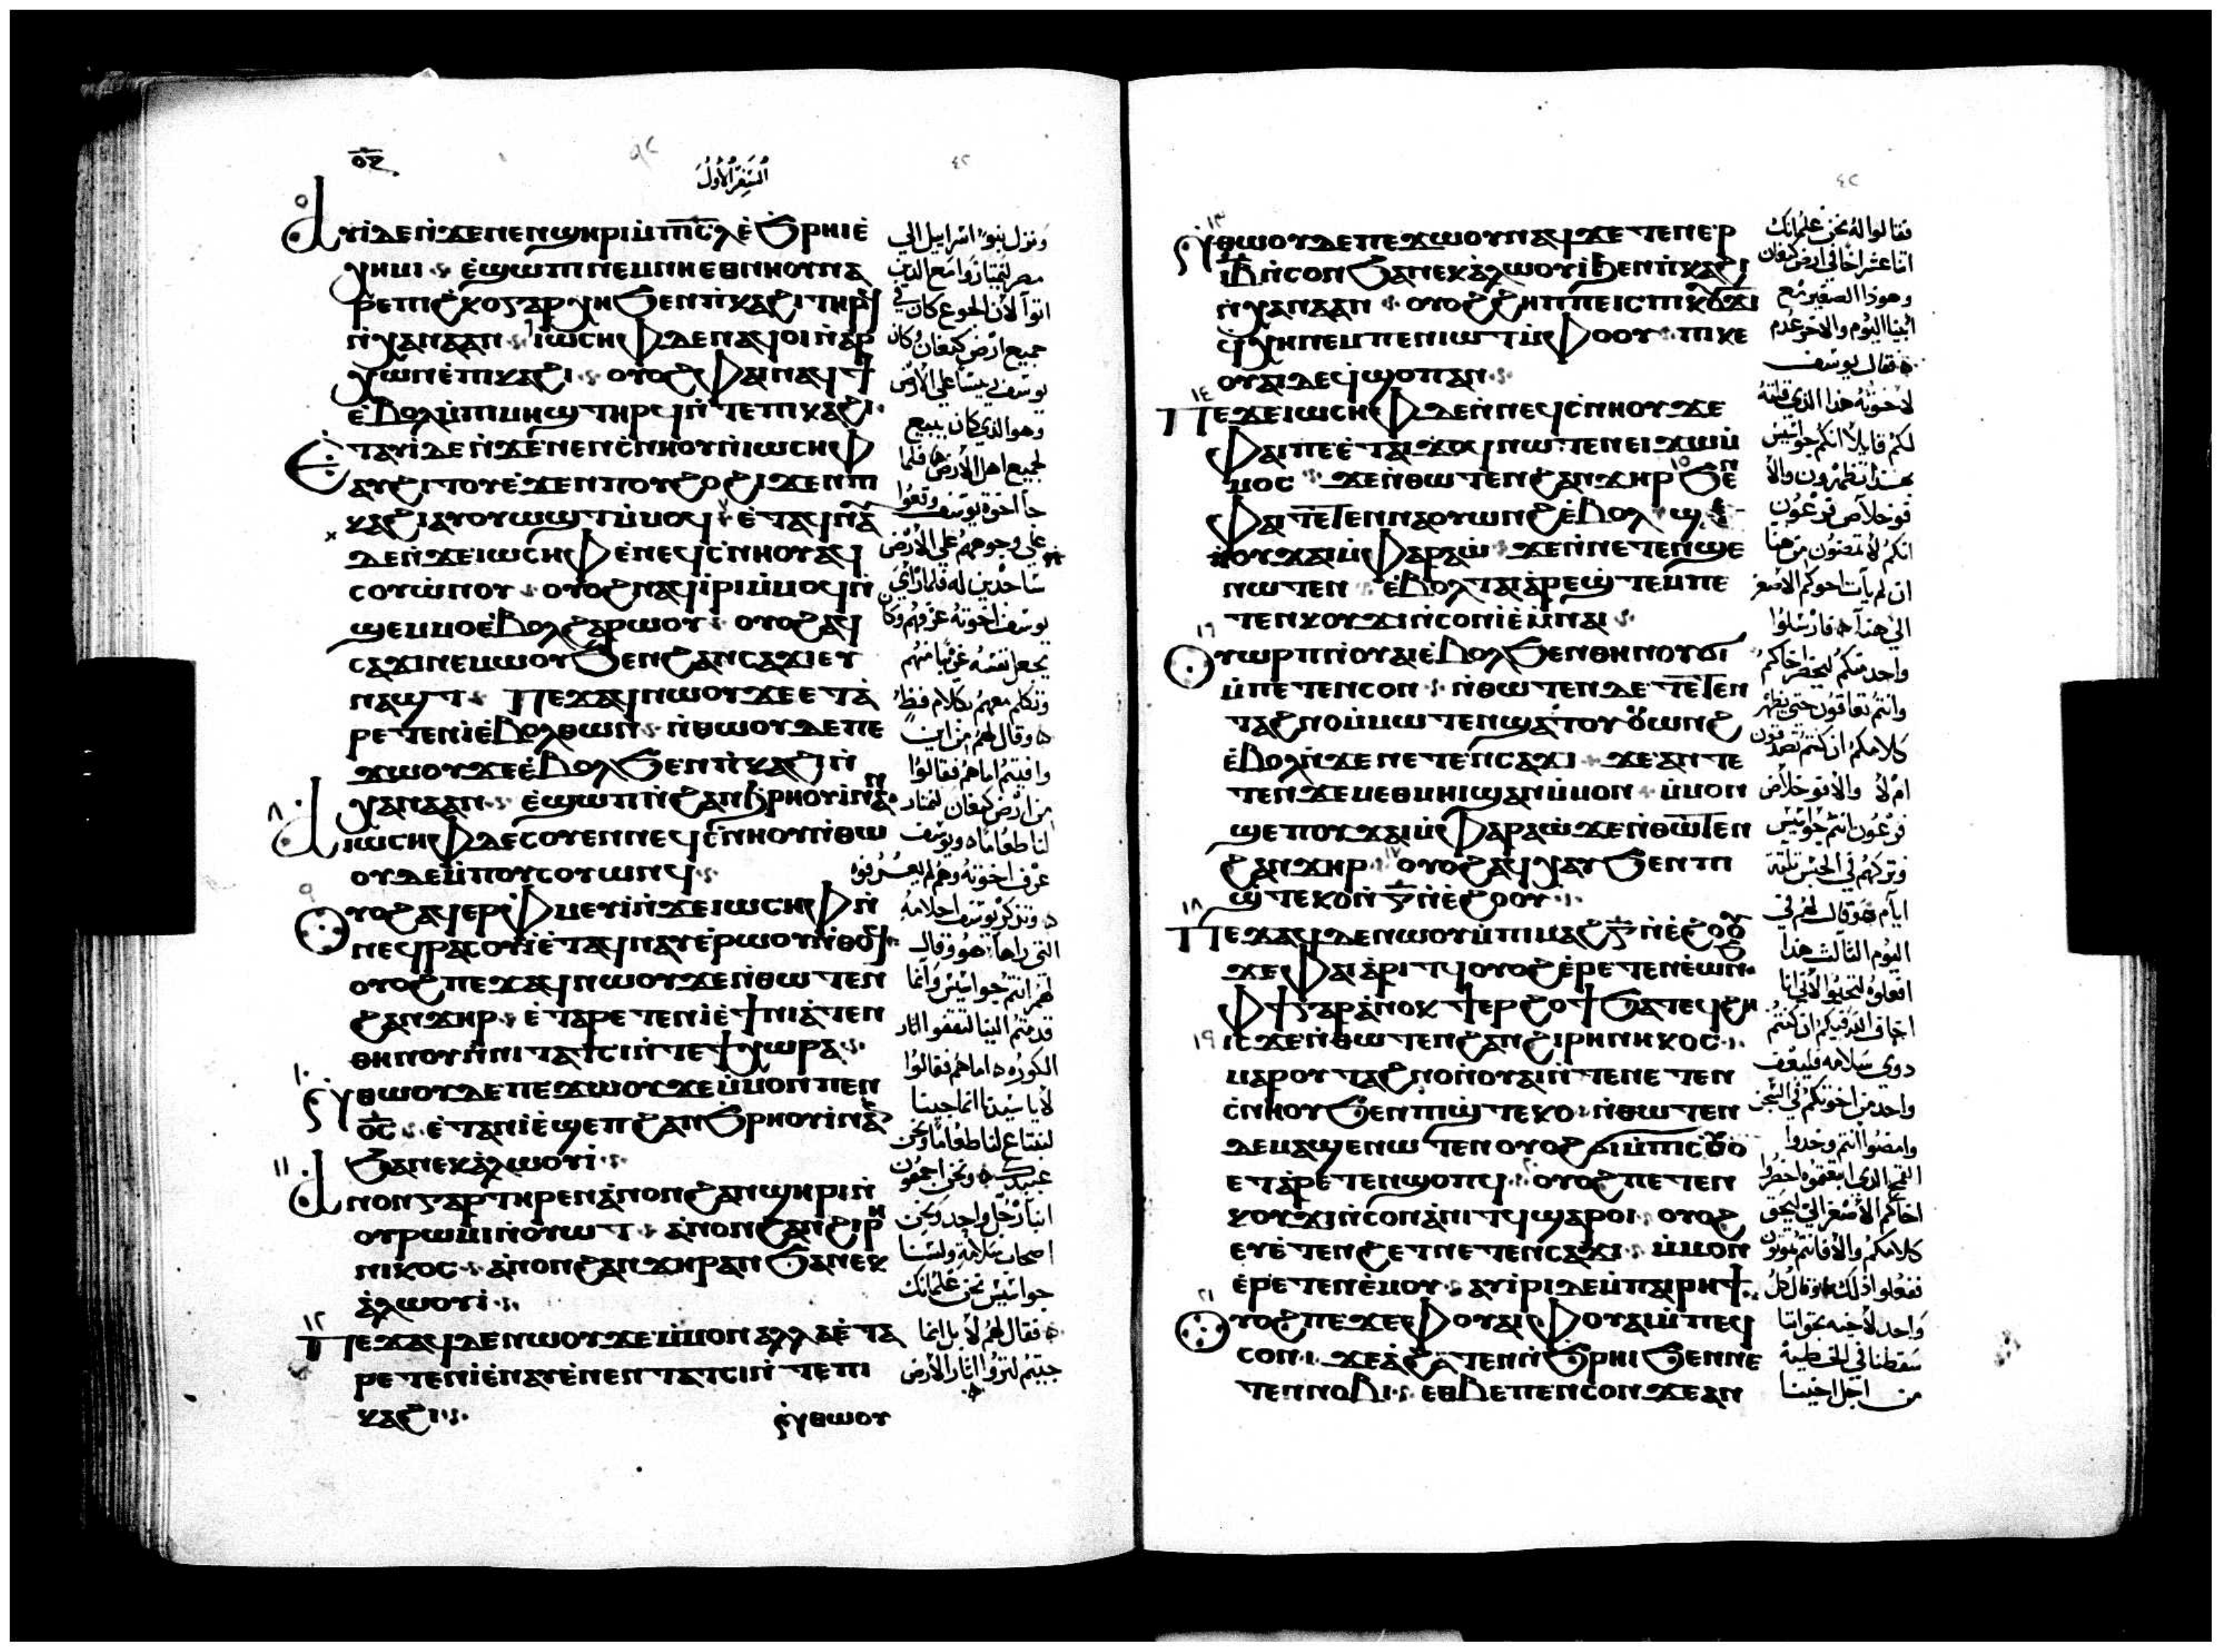 ⲟⲍ
السفر الاول
ⲁⲩⲓ̀ ⲇⲉ ⲛ̀ϫⲉ ⲛⲉⲛϣⲏⲣⲓ ⲙ̀ⲡⲓⲥⲗ ⲉ̀ϧⲣⲏⲓ ⲉ̀
ⲭⲏⲙⲓ ⲉ̀ϣⲱⲡ ⲛⲉⲙ ⲛⲏ ⲉⲑⲛⲏⲟⲩ ⲛⲁ
ⲣⲉ ⲡⲓϩⲕⲟ ⲅⲁⲣ ⲭⲏ ϧⲉⲛ ⲡ̀ⲕⲁϩⲓ ⲧⲏⲣϥ
ⲛ̀ⲭⲁⲛⲁⲁⲛ ⲓⲱⲥⲏⲫ ⲇⲉ ⲛⲁϥⲟⲓ ⲛ̀ⲁⲣ
ⲭⲱⲛ ⲉ̀ⲡⲓⲕⲁϩⲓ ⲟⲩⲟϩ ⲫⲁⲓ ⲛⲁϥϯ
ⲉ̀ⲃⲟⲗ ⲙ̀ⲡⲓⲙⲏϣ ⲧⲏⲣϥ ⲛ̀ⲧⲉ ⲡⲓⲕⲁϩⲓ
ⲉⲧⲁⲩⲓ̀ ⲇⲉ ⲛ̀ϫⲉ ⲛⲉⲛⲥ̀ⲛⲏⲟⲩ ⲛ̀ⲓⲱⲥⲏⲫ
ⲁⲩϩⲓⲧⲟⲩ ⲉ̀ϫⲉⲛ ⲡⲟⲩϩⲟ ϩⲓϫⲉⲛ ⲡ
ⲕⲁϩⲓ ⲁⲩⲟⲩⲱϣⲧ ⲙ̀ⲙⲟϥ ⲉ̀ⲧⲁϥⲛⲁ
ⲇⲉ ⲛ̀ϫⲉ ⲓⲱⲥⲏⲫ ⲉ̀ⲛⲉϥⲥ̀ⲛⲏⲟⲩ ⲁϥ
ⲥⲟⲩⲱⲛⲟⲩ ⲟⲩⲟϩ ⲛⲁϥⲓ̀ⲣⲓ ⲙ̀ⲙⲟϥ ⲛ̀
ϣⲉⲙⲙⲟ ⲉ̀ⲃⲟⲗϩⲁⲣⲱⲟⲩ ⲟⲩⲟϩ ⲁϥ
ⲥⲁϫⲓ ⲛⲉⲙⲱⲟⲩ ϧⲉⲛ ϩⲁⲛⲥⲁϫⲓ ⲉⲩ
ⲛⲁϣⲧ ⲡⲉϫⲁϥ ⲛⲱⲟⲩ ϫⲉ ⲉⲧⲁ
ⲣⲉⲧⲉⲛⲓ̀ ⲉ̀ⲃⲟⲗ ⲑⲱⲛ ⲛ̀ⲑⲱⲟⲩ ⲇⲉ ⲡⲉ
ϫⲱⲟⲩ ϫⲉ ⲉ̀ⲃⲟⲗϧⲉⲛ ⲡ̀ⲕⲁϩⲓ ⲛ̀
ⲭⲁⲛⲁⲁⲛ ⲉ̀ϣⲱⲡ ⲛ̀ϩⲁⲛϧⲣⲏⲟⲩⲓ̀ ⲛⲁⲛ
٨ ⲁ ⲓⲱⲥⲏⲫ ⲇⲉ ⲥⲟⲩⲉⲛ ⲛⲉϥⲥ̀ⲛⲏⲟⲩ ⲛ̀ⲑⲱ
ⲟⲩ ⲇⲉ ⲙ̀ⲡⲟⲩⲥⲟⲩⲱⲛϥ
٩ ⲟⲩⲟϩ ⲁϥⲉⲣⲫ̀ⲙⲉⲩⲓ̀ ⲛ̀ϫⲉ ⲓⲱⲥⲏⲫ ⲛ̀
ⲛⲉϥⲣⲁⲥⲟⲩⲓ̀ ⲉ̀ⲧⲁϥⲛⲁⲩ ⲉ̀ⲣⲱⲟⲩ ⲛ̀ⲑⲟϥ
ⲟⲩⲟϩ ⲡⲉϫⲁϥ ⲛⲱⲟⲩ ϫⲉ ⲛ̀ⲑⲱⲧⲉⲛ
ϩⲁⲛϫⲏⲣ ⲉ̀ⲧⲁⲣⲉⲧⲉⲛⲓ̀ ⲉ̀ϯⲛⲓⲁ̀ⲧⲉⲛ
ⲑⲏⲛⲟⲩ ⲛ̀ⲛⲓⲧⲁⲧⲥⲓ ⲛ̀ⲧⲉ ϯⲭⲱⲣⲁ
١٠ ⲛ̀ⲑⲱⲟⲩ ⲇⲉ ⲡⲉϫⲱⲟⲩ ϫⲉ ⲙ̀ⲙⲟⲛ ⲡⲉⲛ
ⲟ̅ⲥ̅ ⲉ̀ⲧⲁⲛⲓ̀ ⲉ̀ϣⲉⲡ ϩⲁⲛϧⲣⲏⲟⲩⲓ̀ ⲛⲁⲛ
ϧⲁ ⲛⲉⲕⲁ̀ⲗⲱⲟⲩⲓ̀
١١ ⲁⲛⲟⲛ ⲅⲁⲣ ⲧⲏⲣⲉⲛ ⲁ̀ⲛⲟⲛ ϩⲁⲛϣⲏⲣⲓ ⲛ̀
ⲟⲩⲣⲱⲙⲓ ⲛ̀ⲟⲩⲱⲧ ⲁ̀ⲛⲟⲛ ϩⲁⲛϩⲓⲣⲏ
ⲛⲓⲕⲟⲥ ⲁ̀ⲛⲟⲛ ϩⲁⲛϫⲏⲣ ⲁⲛ ϧⲁ ⲛⲉⲕ
ⲁ̀ⲗⲱⲟⲩⲓ̀
١٢ ⲡⲉϫⲁϥ ⲇⲉ ⲛⲱⲟⲩ ϫⲉ ⲙ̀ⲙⲟⲛ ⲁⲗⲗⲁ ⲉ̀ⲧⲁ
ⲣⲉⲧⲉⲛⲓ̀ ⲉ̀ⲛⲁⲩ ⲉ̀ⲛⲉⲛⲧⲁⲧⲥⲓ ⲛ̀ⲧⲉ ⲡⲓ
ⲕⲁϩⲓ
ⲛ̀ⲑⲱⲟⲩ
ونزل بنو اسرائيل الي
مصر ليمتازوا مع الذين
اتوا لان الجوع كان في
جميع ارض كنعان وكان
يوسف رييسا علي الارض
وهو الذي كان يبيع
لجميع اهل الارض فلما
جا اخوة يوسف وقعوا
علي وجوههم علي الارض
ساجدين له فلما راي
يوسف اخوته عرفهم وكان
يجعل نفسه غريبا منهم
وتكلم معهم بكلام فظ
وقال لهم من اين
وافيتم اما هم فقالوا
من ارض كنعان لنمتار
لنا طعاما ويوسف
عرف اخوته وهم لم يعرفوه
وتذكر يوسف احلامه
التي راها هو وقال
لهم انتم جواسيس وانما
قدمتم الينا لتقفوا اثار
الكوره اما هم فقالوا
لا يا سيدنا انما جينا
لنبتاع لنا طعاما ونحن
عبيدك ونحن اجمعون
ابنا رجل واحد ونحن
اصحاب سلامة ولسنا
جواسيس نحن غلمانك
فقال لهم لا بل انما
جيتم لتروا اثار الارض
٤٢
١٣ ⲛ̀ⲑⲱⲟⲩ ⲇⲉ ⲡⲉϫⲱⲟⲩ ⲛⲁϥ ϫⲉ ⲧⲉⲛⲉⲣ
ⲓⲃ ⲛ̀ⲥⲟⲛ ϧⲁ ⲛⲉⲕⲁ̀ⲗⲱⲟⲩⲓ̀ ϧⲉⲛ ⲡ̀ⲕⲁϩⲓ
ⲛ̀ⲭⲁⲛⲁⲁⲛ ⲟⲩⲟϩ ϩⲏⲡⲡⲉ ⲓⲥ ⲡⲓⲕⲟⲩϫⲓ
ϥ̀ⲭⲏ ⲛⲉⲙ ⲡⲉⲛⲓⲱⲧ ⲙ̀ⲫⲟⲟⲩ ⲡⲓⲕⲉ
ⲟⲩⲁⲓ ⲇⲉ ϥ̀ϣⲟⲡ ⲁⲛ
١٤ ⲡⲉϫⲉ ⲓⲱⲥⲏⲫ ⲇⲉ ⲛ̀ⲛⲉϥⲥ̀ⲛⲏⲟⲩ ϫⲉ
ⲫⲁⲓ ⲡⲉ ⲉ̀ⲧⲁⲓϫⲟϥ ⲛⲱⲧⲉⲛ ⲉⲓϫⲱ ⲙ̀
ⲙⲟⲥ ϫⲉ ⲛ̀ⲑⲱⲧⲉⲛ ϩⲁⲛϫⲏⲣ ١٥ ϧⲉⲛ
ⲫⲁⲓ ⲧⲉⲧⲉⲛⲛⲁⲟⲩⲱⲛϩ ⲉ̀ⲃⲟⲗ ϣⲉ
ⲡⲟⲩϫⲁⲓ ⲙ̀ⲫⲁⲣⲁⲱ̀ ϫⲉ ⲛ̀ⲛⲉⲧⲉⲛϣⲉ
ⲛⲱⲧⲉⲛ ⲉ̀ⲃⲟⲗ ⲧⲁⲓ ⲁ̀ⲣⲉϣ̀ⲧⲉⲙ ⲡⲉ
ⲧⲉⲛⲕⲟⲩϫⲓ ⲛ̀ⲥⲟⲛ ⲓ̀ ⲉ̀ⲙ̀ⲛⲁⲓ
١٦ ⲟⲩⲱⲣⲡ ⲛ̀ⲟⲩⲁⲓ ⲉ̀ⲃⲟⲗϧⲉⲛ ⲑⲏⲛⲟⲩ ϭⲓ
ⲙ̀ⲡⲉⲧⲉⲛⲥⲟⲛ ⲛ̀ⲑⲱⲧⲉⲛ ⲇⲉ ⲧⲉⲧⲉⲛ
ⲧⲁϩⲛⲟ ⲙ̀ⲙⲱⲧⲉⲛ ϣⲁⲧⲟⲩⲟⲩⲱⲛϩ
ⲉ̀ⲃⲟⲗ ⲛ̀ϫⲉ ⲛⲉⲧⲉⲛⲥⲁϫⲓ ϫⲉ ⲁⲛ ⲧⲉ
ⲧⲉⲛϫⲉ ⲙⲉⲑⲙⲏⲓ ϣⲁⲛ ⲙ̀ⲙⲟⲛ ⲙ̀ⲙⲟⲛ
ϣⲉ ⲡⲟⲩϫⲁⲓ ⲙ̀ⲫⲁⲣⲁⲱ̀ ϫⲉ ⲛ̀ⲑⲱⲧⲉⲛ
ϩⲁⲛϫⲏⲣ ١٧ ⲟⲩⲟϩ ⲁϥⲭⲁⲩ ϧⲉⲛ ⲡⲓ
ϣ̀ⲧⲉⲕⲟ ⲛ̀ⲅ̅ ⲛ̀ⲉ̀ϩⲟⲟⲩ
١٨ ⲡⲉϫⲁϥ ⲇⲉ ⲛⲱⲟⲩ ⲙ̀ⲡⲓⲙⲁϩⲅ̅ ⲛ̀ⲉ̀ϩⲟⲟⲩ
ϫⲉ ⲫⲁⲓ ⲁ̀ⲣⲓⲧϥ ⲟⲩⲟϩ ⲉ̀ⲣⲉⲧⲉⲛⲉ̀ⲱⲛϧ
ⲫϯ ⲅⲁⲣ ⲁ̀ⲛⲟⲕ ϯⲉⲣϩⲟϯ ϧⲁⲧⲉϥϩⲏ
١٩ ⲓⲥϫⲉ ⲛ̀ⲑⲱⲧⲉⲛ ϩⲁⲛϩⲓⲣⲏⲛⲏⲕⲟⲥ
ⲙⲁⲣⲟⲩⲧⲁϩⲛⲟ ⲛ̀ⲟⲩⲁⲓ ⲛ̀ⲧⲉ ⲛⲉⲧⲉⲛ
ⲥ̀ⲛⲏⲟⲩ ϧⲉⲛ ⲡⲓϣ̀ⲧⲉⲕⲟ ⲛ̀ⲑⲱⲧⲉⲛ
ⲇⲉ ⲙⲁϣⲉⲛⲱⲧⲉⲛ ⲟⲩⲟϩ ϭⲓ ⲙ̀ⲡⲓⲥⲟⲩⲟ
ⲉⲧⲁ̀ⲣⲉⲧⲉⲛϣⲟⲡϥ ⲟⲩⲟϩ ⲡⲉⲧⲉⲛ
ⲕⲟⲩϫⲓ ⲛ̀ⲥⲟⲛ ⲁ̀ⲛⲓⲧϥ ϣⲁⲣⲟⲓ ⲟⲩⲟϩ
ⲉⲩⲉ̀ⲧⲉⲛϩⲉⲧ ⲛⲉⲧⲉⲛⲥⲁϫⲓ ⲙ̀ⲙⲟⲛ
ⲉ̀ⲣⲉⲧⲉⲛⲉ̀ⲙⲟⲩ ⲁⲩⲓ̀ⲣⲓ ⲇⲉ ⲙ̀ⲡⲁⲓⲣⲏϯ
٢١ ⲟⲩⲟϩ ⲡⲉϫⲉ ⲫⲟⲩⲁⲓ ⲫⲟⲩⲁⲓ ⲙ̀ⲡⲉϥ
ⲥⲟⲛ ϫⲉ ⲁ̀ϩⲁ ⲧⲉⲛⲛ̀ϧⲣⲏⲓ ϧⲉⲛ ⲛⲉ
ⲧⲉⲛⲛⲟⲃⲓ ⲉⲑⲃⲉ ⲡⲉⲛⲥⲟⲛ ϫⲉ ⲁⲛ
فقالوا له نحن غلمانك
اثنا عشر اخا في ارض كنعان
وهوذا الصغير مع
ابينا اليوم والاخر عدم
فقال يوسف
لاخوته هذا الذي قلته
لكم قايلا انكم جواسيس
بهذا تظهرون والا
فوخلاص فرعون
انكم لا تمضون من هنا
ان لم يات اخوكم الاصغر
الي هنا فارسلوا
واحد منكم ليحضر اخاكم
وانتم تعاقون حتي يظهر
كلامكم ان كنتم تصدقون
ام لا والا فوخلاص
فرعون انتم جواسيس
وتركهم في الحبس ثلثة
ايام وقال لهم في
اليوم الثالث هذا
افعلوه لتحيوا لاني انا
اخاف الله فيكم ان كنتم
دوي سلامه فليعوق
واحد من اخوتكم في السجن
وامضوا انتم وخدوا
القمح الذي ابتعتموه احضروا
اخاكم الاصغر الي ليحقق
كلامكم والا فانتم تموتون
ففعلوا ذلك وقال كل
واحد لاخيه بحق اننا
سقطنا في الخطية
من اجل اخينا